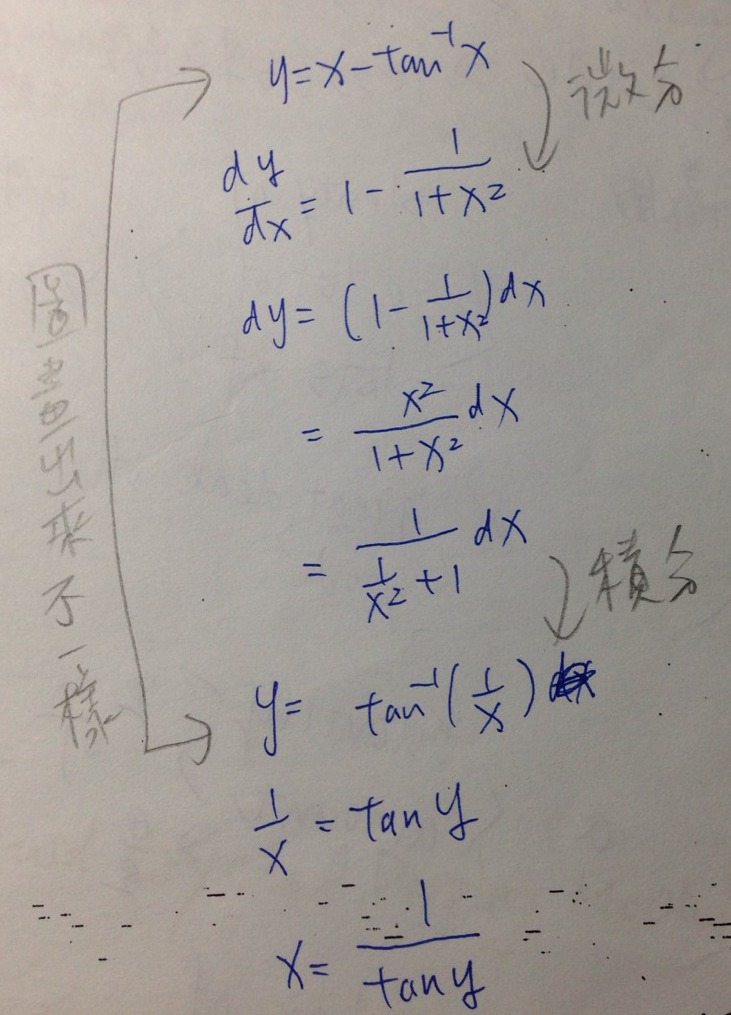 y=x-tan⁻¹x
微分
dy/dx = 1 - 1/(1+x²)
dy = (1 - 1/(1+x²))dx
= x²/(1+x²) dx
= 1/(1/x²+1) dx
積分
y= tan⁻¹(1/x)
1/x = tan y
x= 1/tan y
圖畫出來不一樣